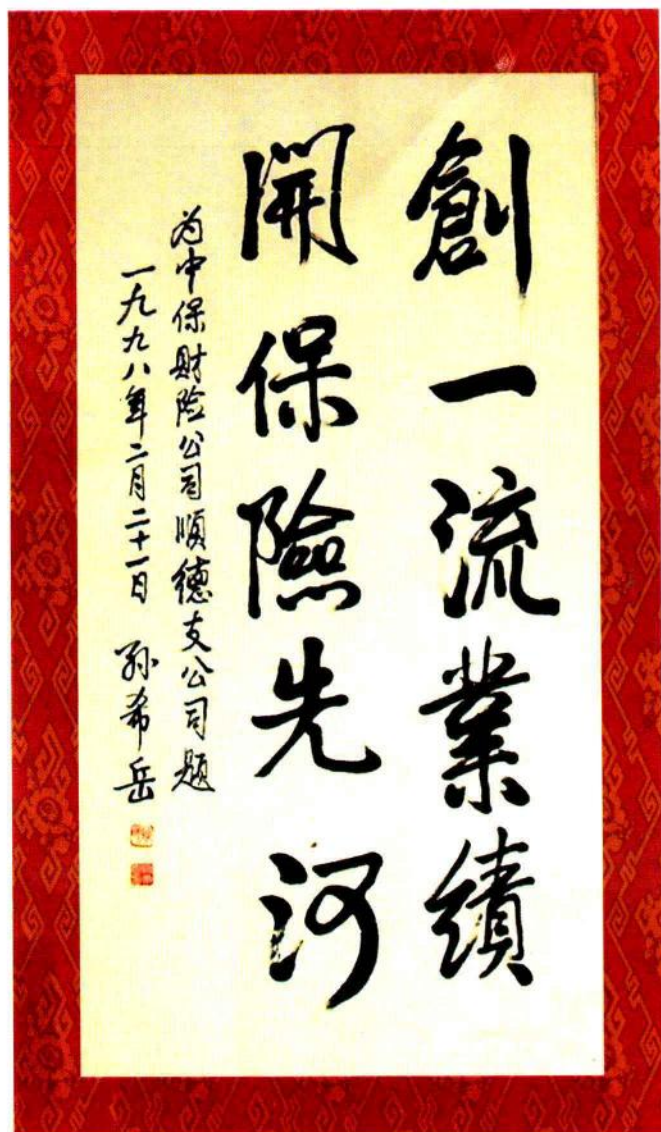 創一流業績
開保險先河
为中保财险公司順德支公司題
一九九八年二月二十一日 孙希岳